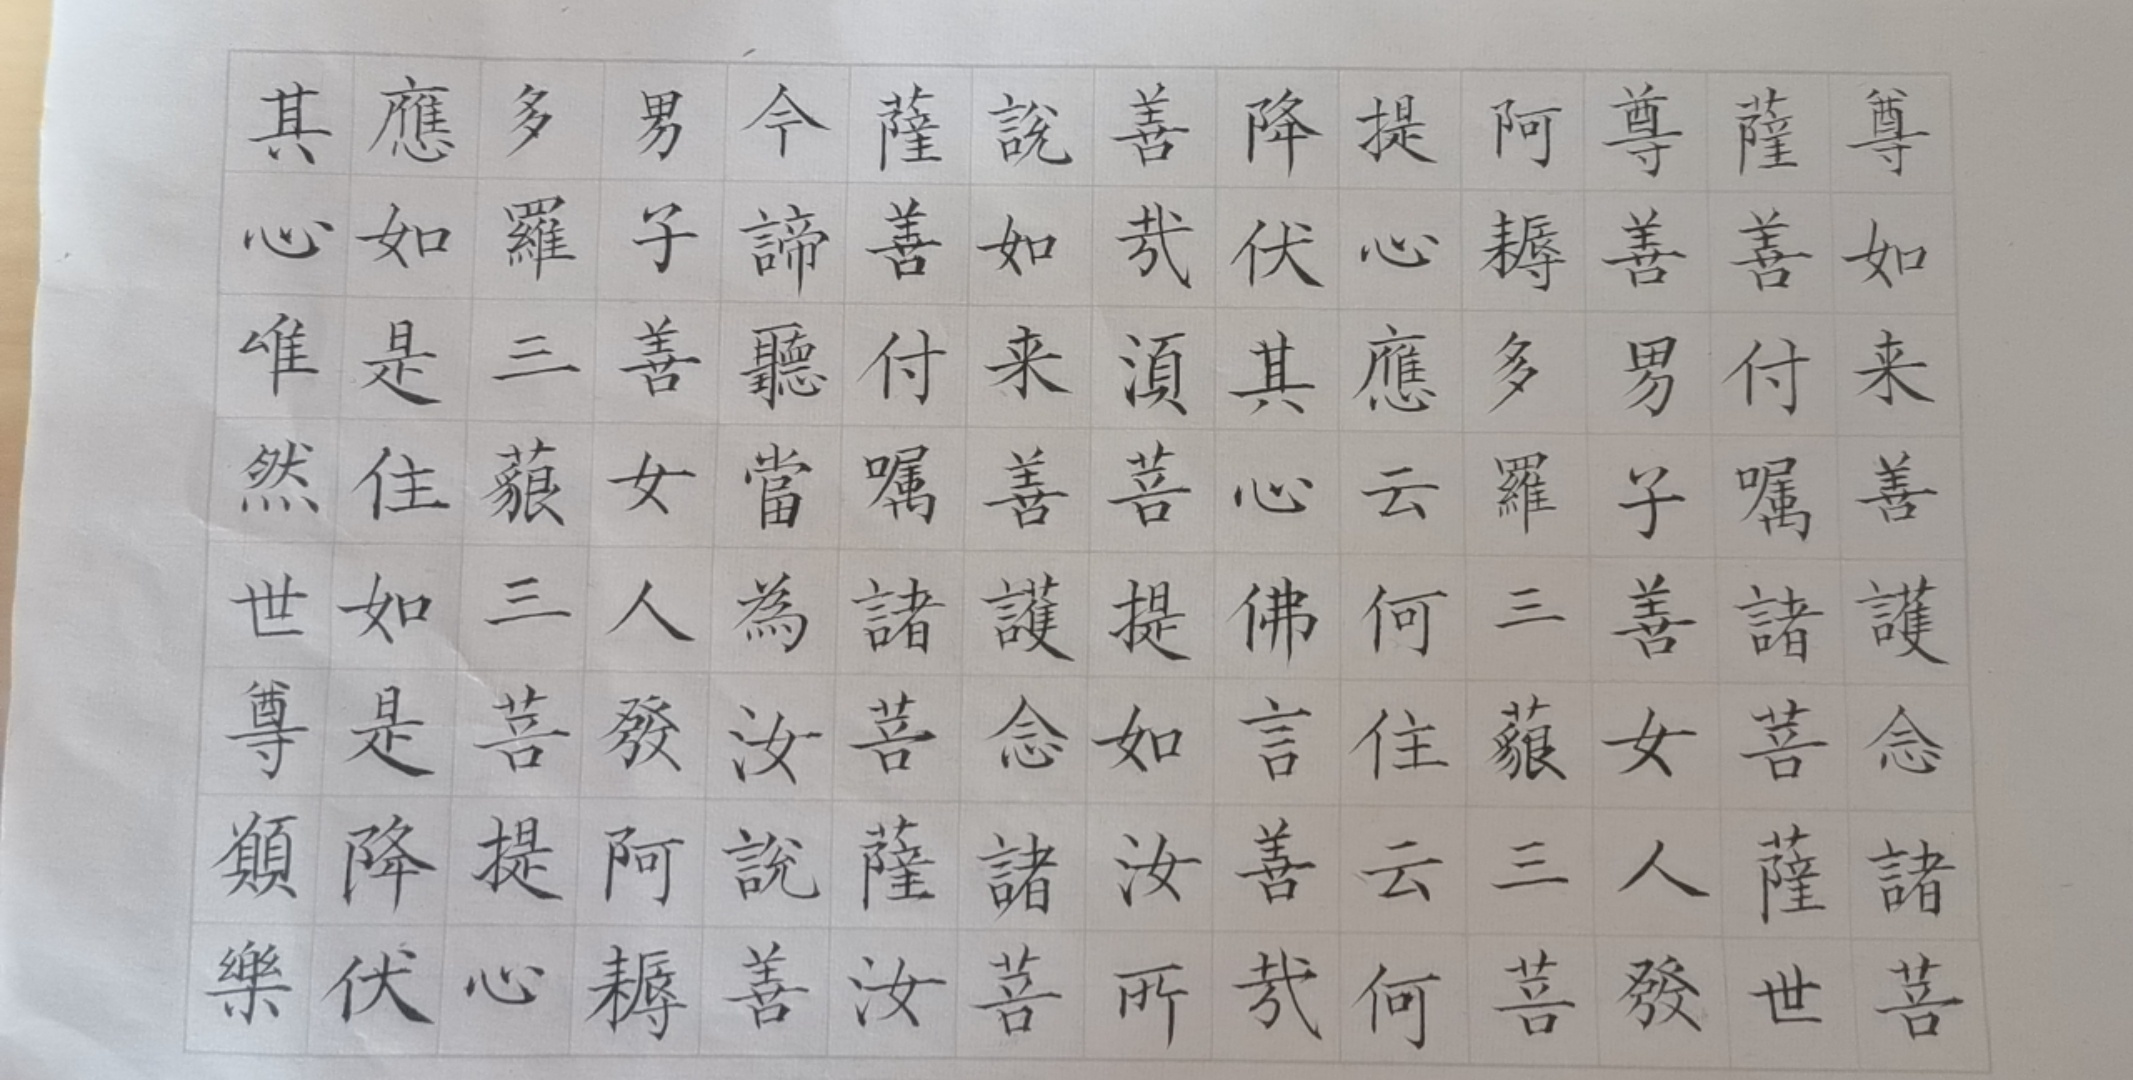 尊如来善護念諸菩
薩善付嘱諸菩薩世
尊善男子善女人發
阿耨多羅三藐三菩
提心應云何住云何
降伏其心佛言善哉
善哉湏菩提如汝所
說如来善護念諸菩
薩善付嘱諸菩薩汝
今諦聽當為汝說善
男子善女人發阿耨
多羅三藐三菩提心
應如是住如是降伏
其心唯然世尊願樂